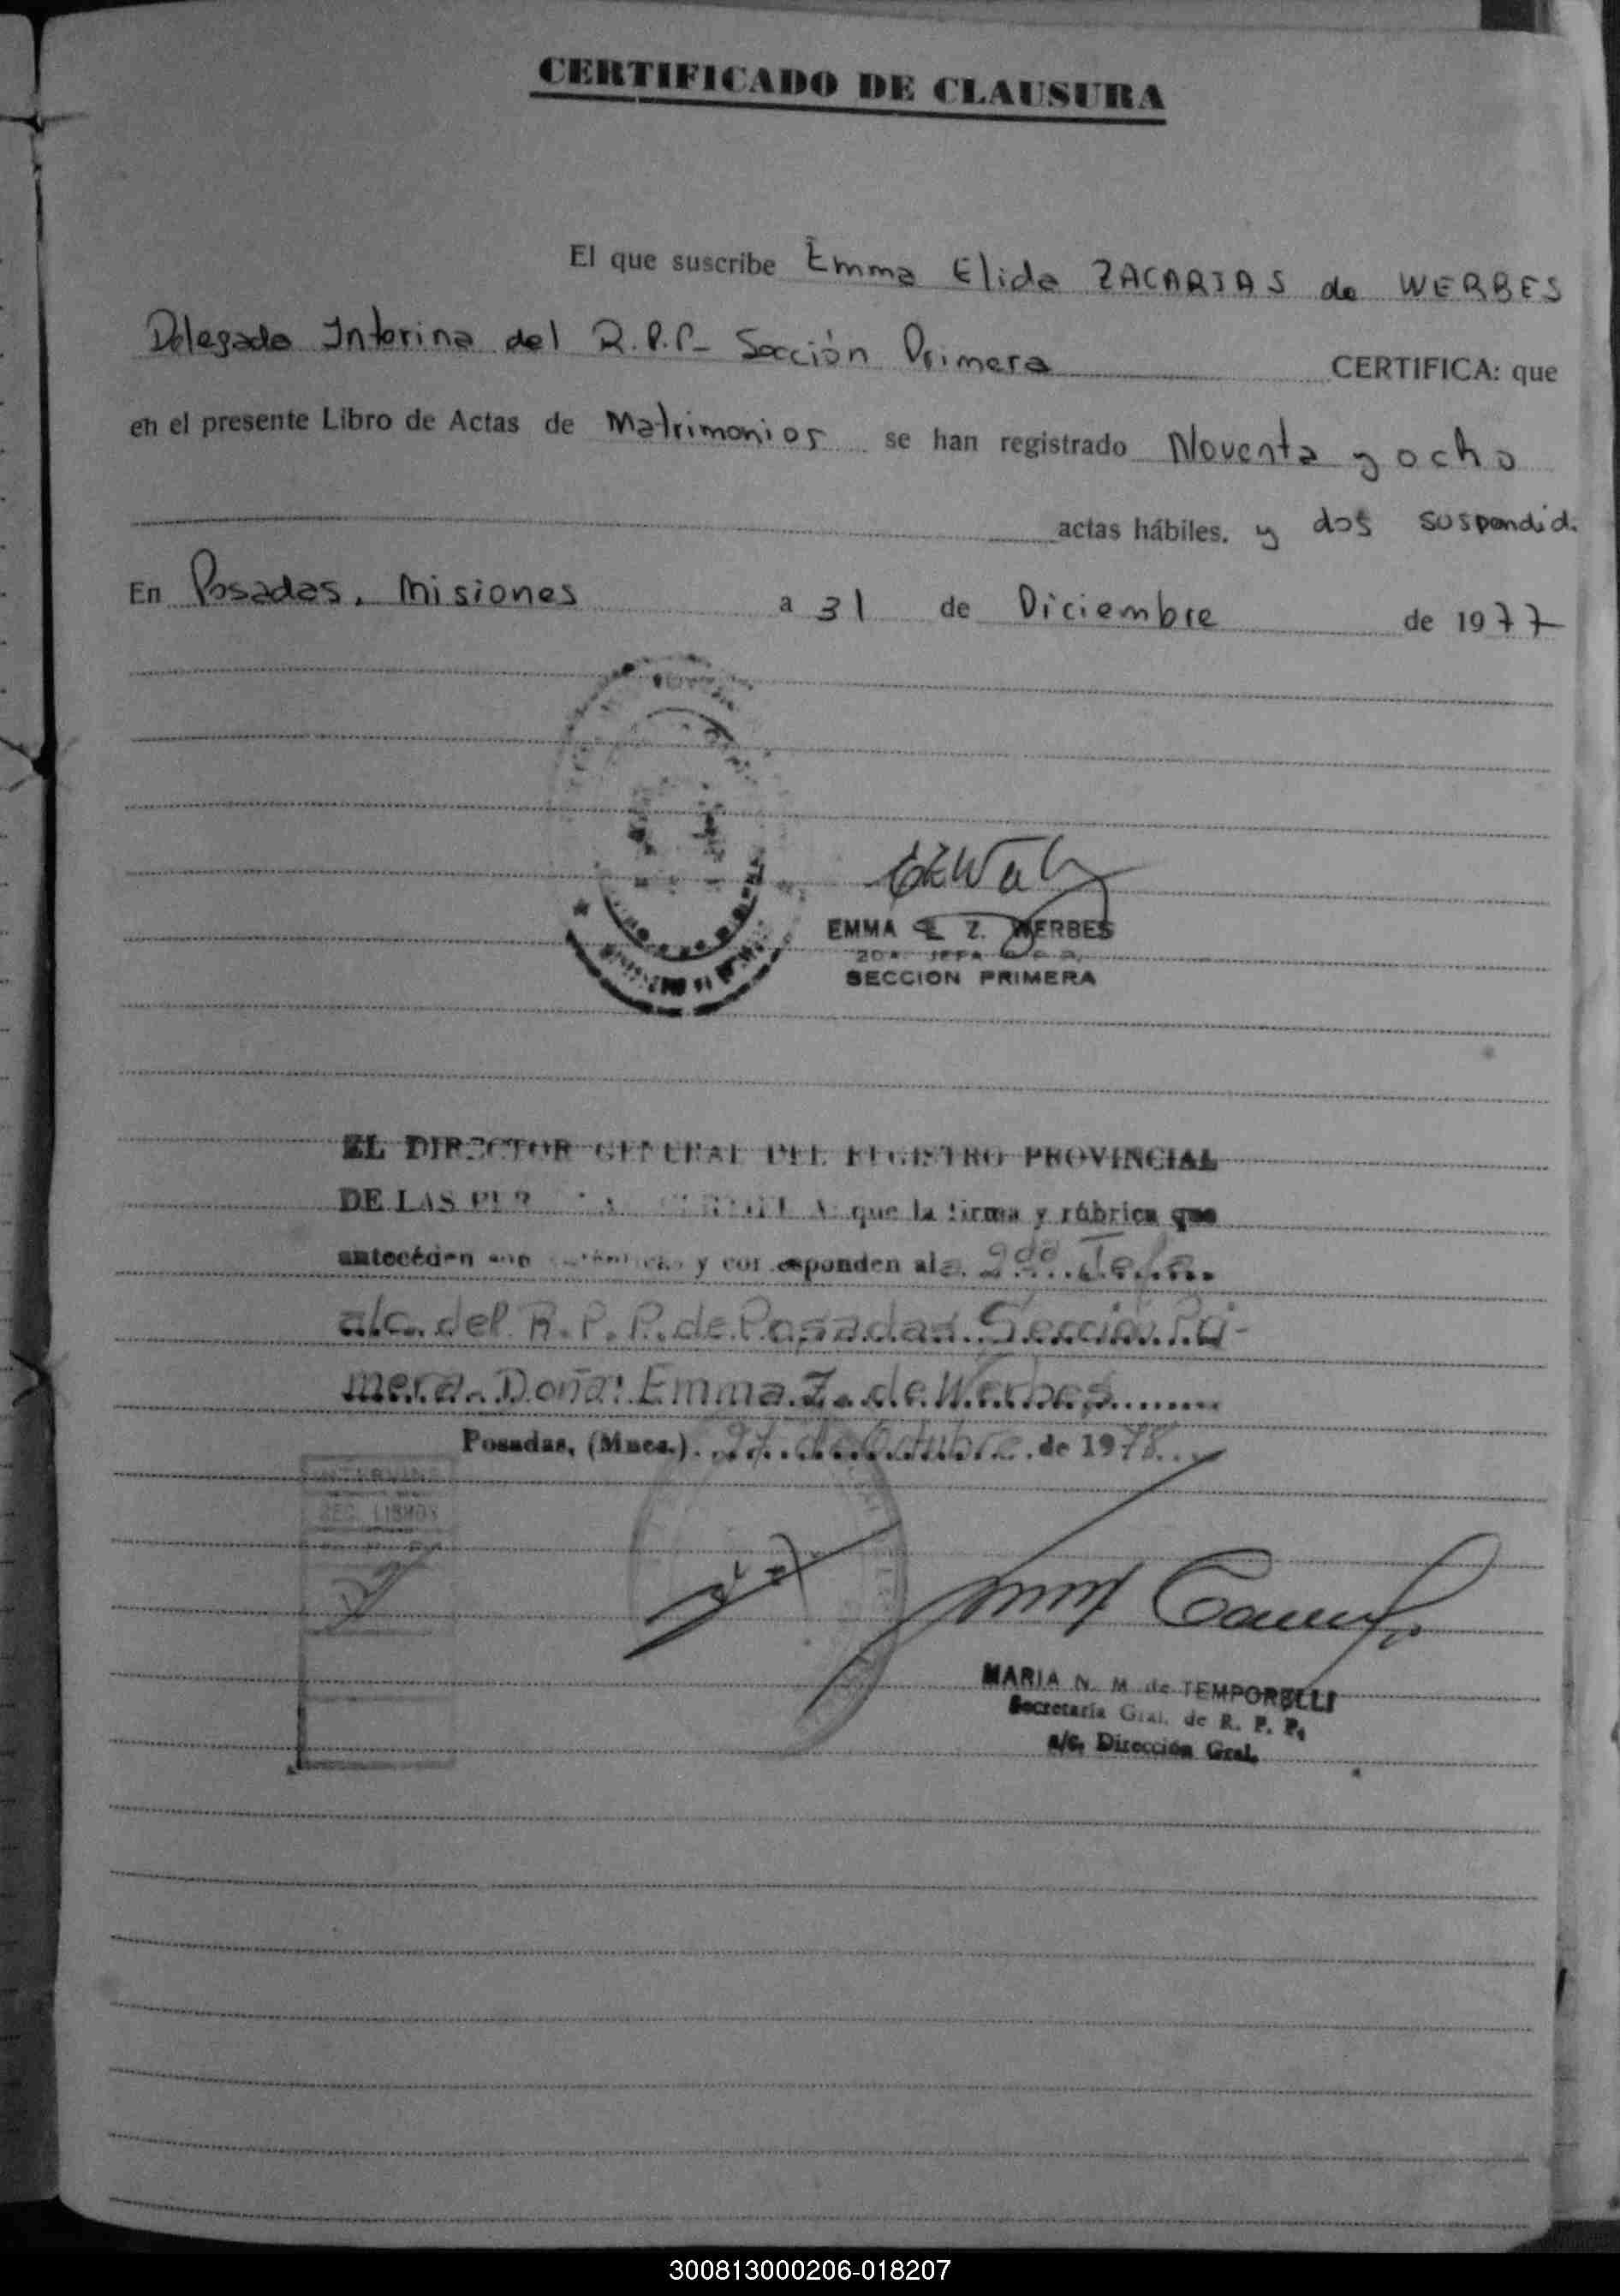 CERTIFICADO DE CLAUSURA
El que suscribe Emma Elida ZACARIAS de WERBES
Delegada Interina del R.P.P- Sección Primera CERTIFICA: que
en el presente Libro de Actas de Matrimonios se han registrado Noventa y ocho
actas hábiles. y dos suspendid.
En Posadas, Misiones a 31 de Diciembre de 1977
EMMA E. Z. WERBES
SECCION PRIMERA
EL DIRECTOR GENERAL DEL REGISTRO PROVINCIAL
DE LAS que la firma y rúbrica que
anteceden son y corresponden al a. 2do. Jefe
a/c. del R.P.P. de Posadas Sección Pri-
mera. Doña: Emma Z. de Werbes
Posadas, (Mnes.). 27 de Octubre de 1978
INTERVINE
SEC. LIBROS
MARIA N. M. de TEMPORELLI
Secretaría Gral. de R. P. P.
a/c. Dirección Gral.
300813000206-018207